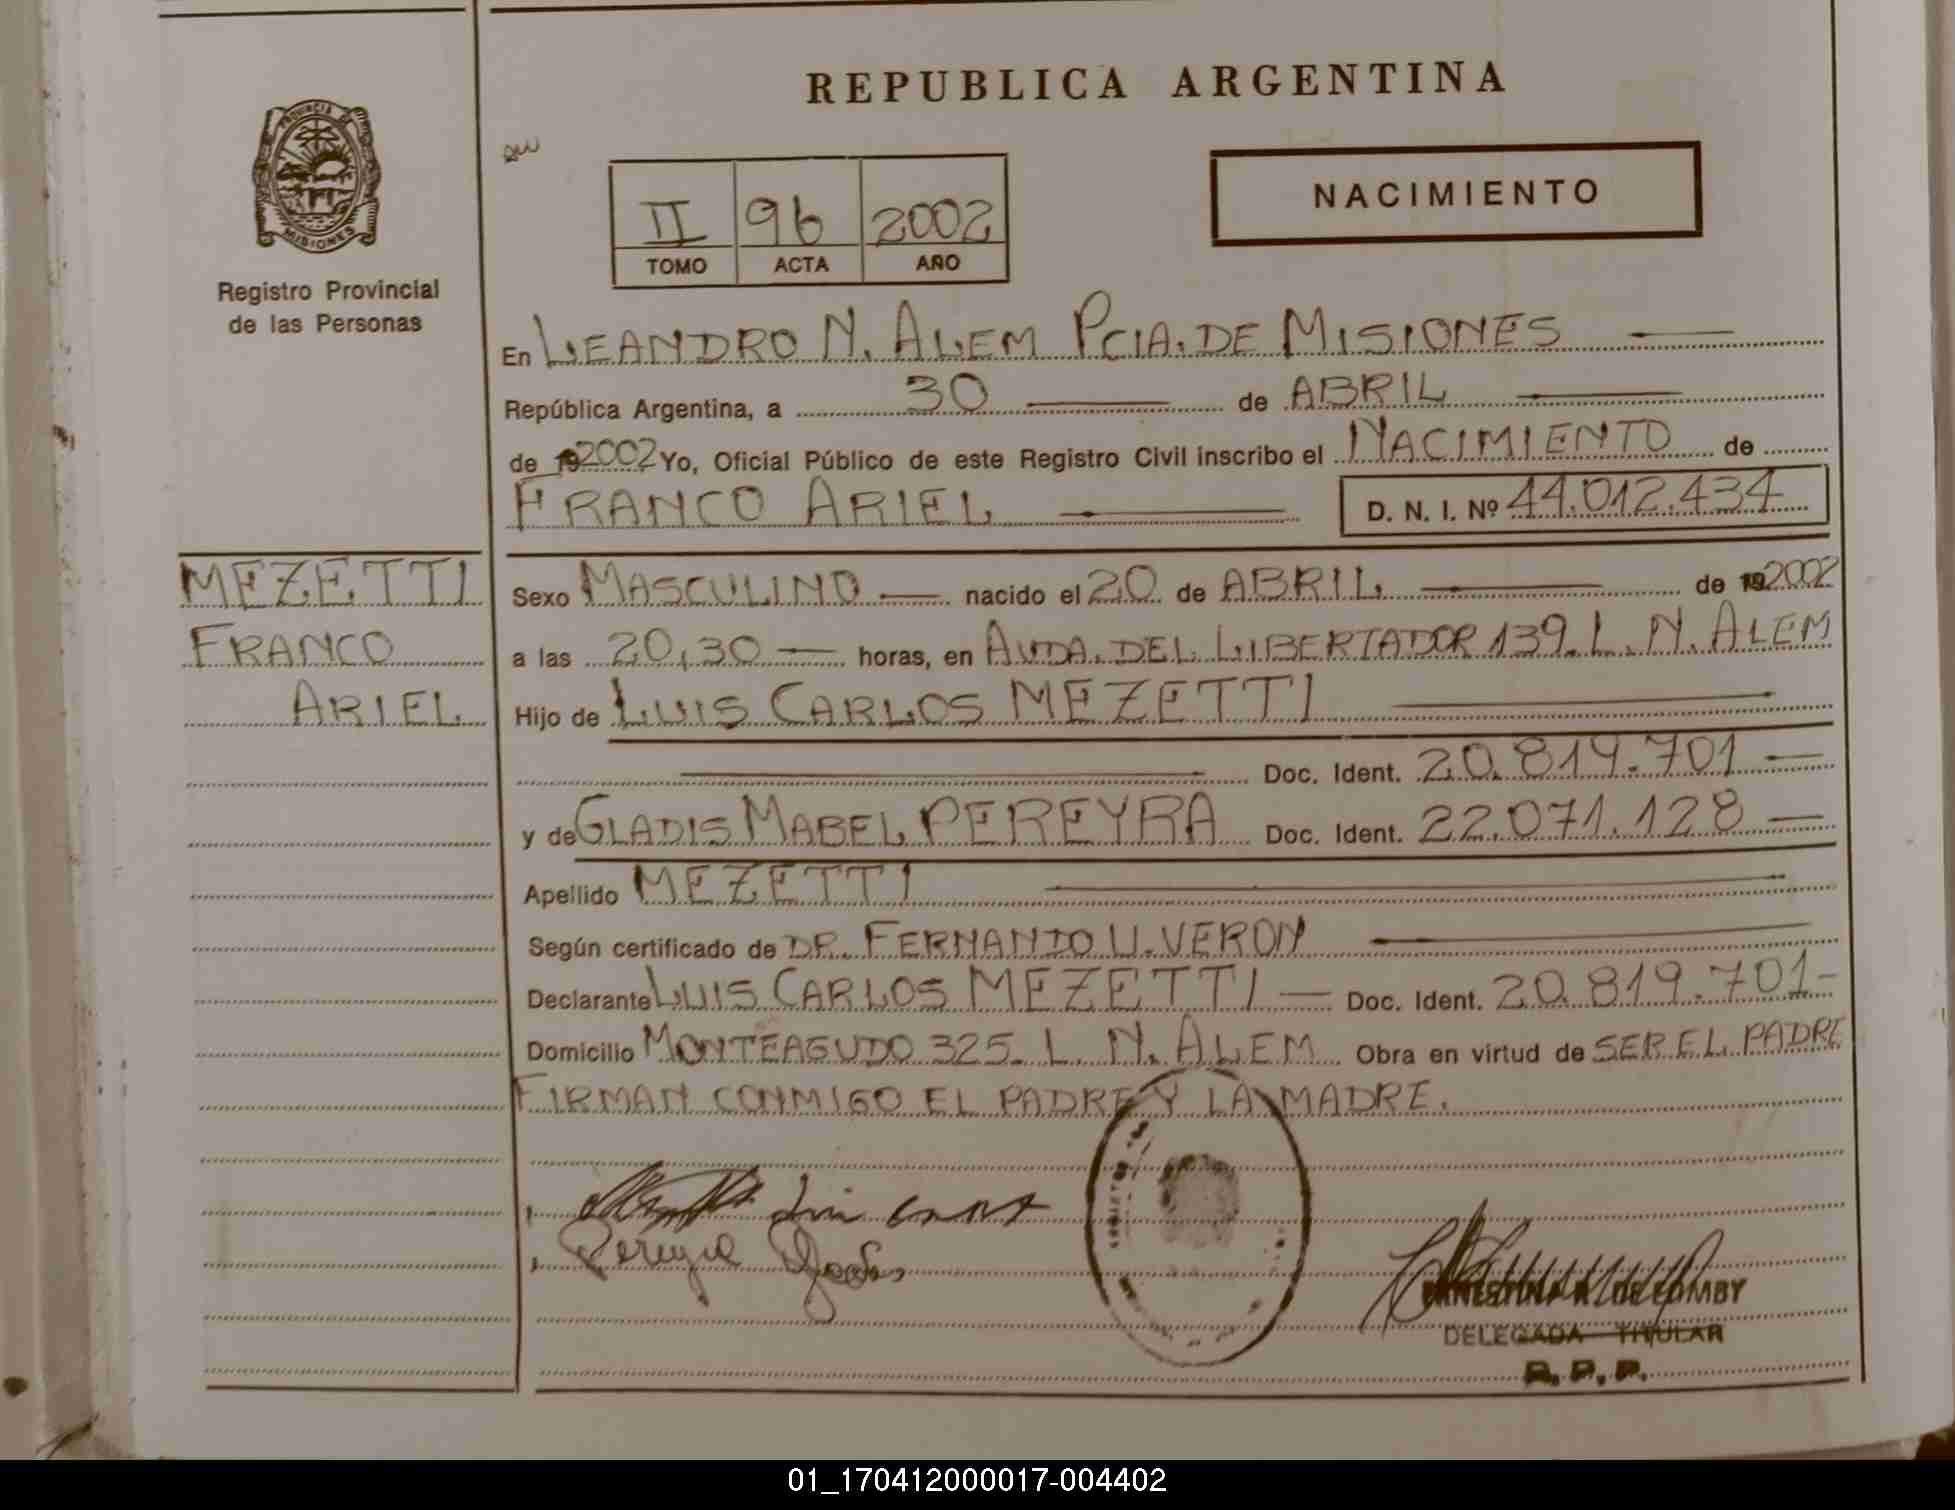 REPUBLICA ARGENTINA
PROVINCIA DE
MISIONES
Registro Provincial
de las Personas
II 96 2002
TOMO ACTA AÑO
NACIMIENTO
En LEANDRO N. ALEM PCIA. DE MISIONES
República Argentina, a 30 de ABRIL
de 192002 Yo, Oficial Público de este Registro Civil inscribo el NACIMIENTO de
FRANCO ARIEL D. N. I. Nº 44.012.434
MEZETTI
FRANCO
ARIEL
Sexo MASCULINO nacido el 20 de ABRIL de 192002
a las 20,30 horas, en AVDA. DEL LIBERTADOR 139. L. N. ALEM
Hijo de LUIS CARLOS MEZETTI
Doc. Ident. 20.819.701
y de GLADIS MABEL PEREYRA Doc. Ident. 22.071.128
Apellido MEZETTI
Según certificado de DR. FERNANDO U. VERON
Declarante LUIS CARLOS MEZETTI Doc. Ident. 20.819.701
Domicilio MONTEAGUDO 325. L. N. ALEM Obra en virtud de SER EL PADRE
FIRMAN CONMIGO EL PADRE Y LA MADRE.
Pereyra Gladis
DELEGADA TITULAR
R. P. P.
01_170412000017-004402